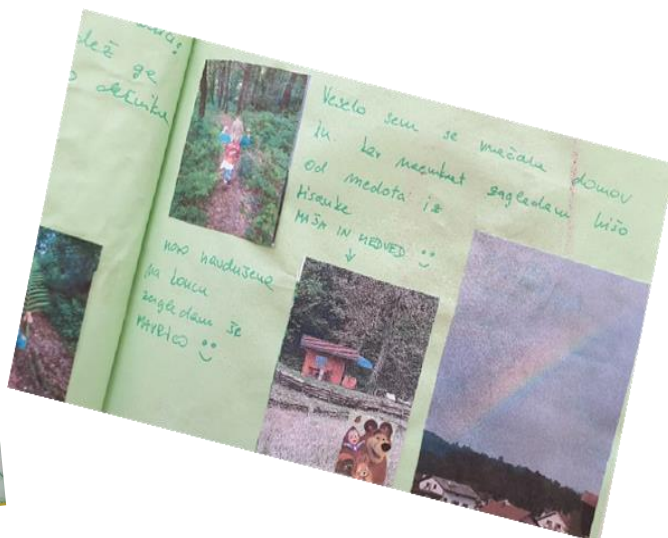 dež ga
Veselo sem se vračala domov
in kar naenkrat zagledam hišo
od medota iz
risanke
MAŠA IN MEDVED
navdušena
na koncu
zagledam še
MAVRICO